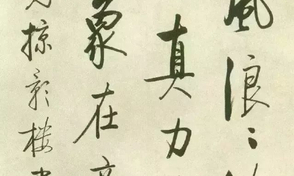 風浪〻
真力
象在
掠影樓